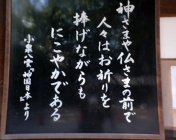 神さまや仏さまの前で
人々はお祈りを
捧げながらも
にこやかである
小泉八雲「神国日本」より